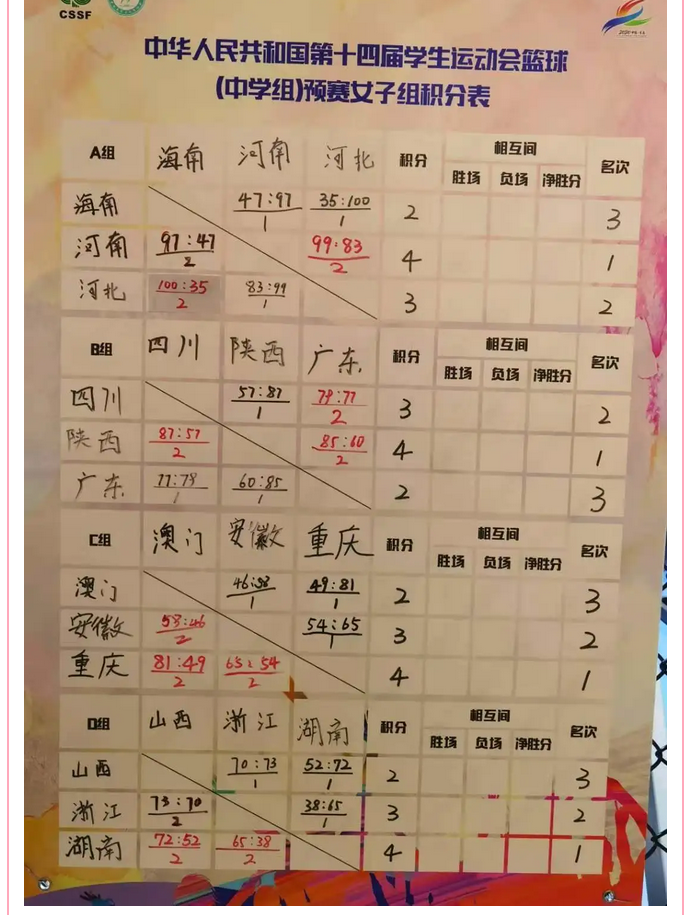 CSSF
中华人民共和国第十四届学生运动会篮球
(中学组)预赛女子组积分表
A组 海南 河南 河北 积分 相互间 名次
胜场 负场 净胜分
海南 47:97 35:100 2 3
1 1
河南 97:47 99:83 4 1
2 2
河北 100:35 83:99 3 2
2 1
B组 四川 陕西 广东 积分 相互间 名次
胜场 负场 净胜分
四川 57:87 79:77 3 2
1 2
陕西 87:57 85:60 4 1
2 2
广东 77:79 60:85 2 3
1 1
C组 澳门 安徽 重庆 积分 相互间 名次
胜场 负场 净胜分
澳门 46:58 49:81 2 3
1 1
安徽 58:46 54:65 3 2
2 1
重庆 81:49 65:54 4 1
2 2
D组 山西 浙江 湖南 积分 相互间 名次
胜场 负场 净胜分
山西 70:73 52:72 2 3
1 1
浙江 73:70 38:65 3 2
2 1
湖南 72:52 65:38 4 1
2 2